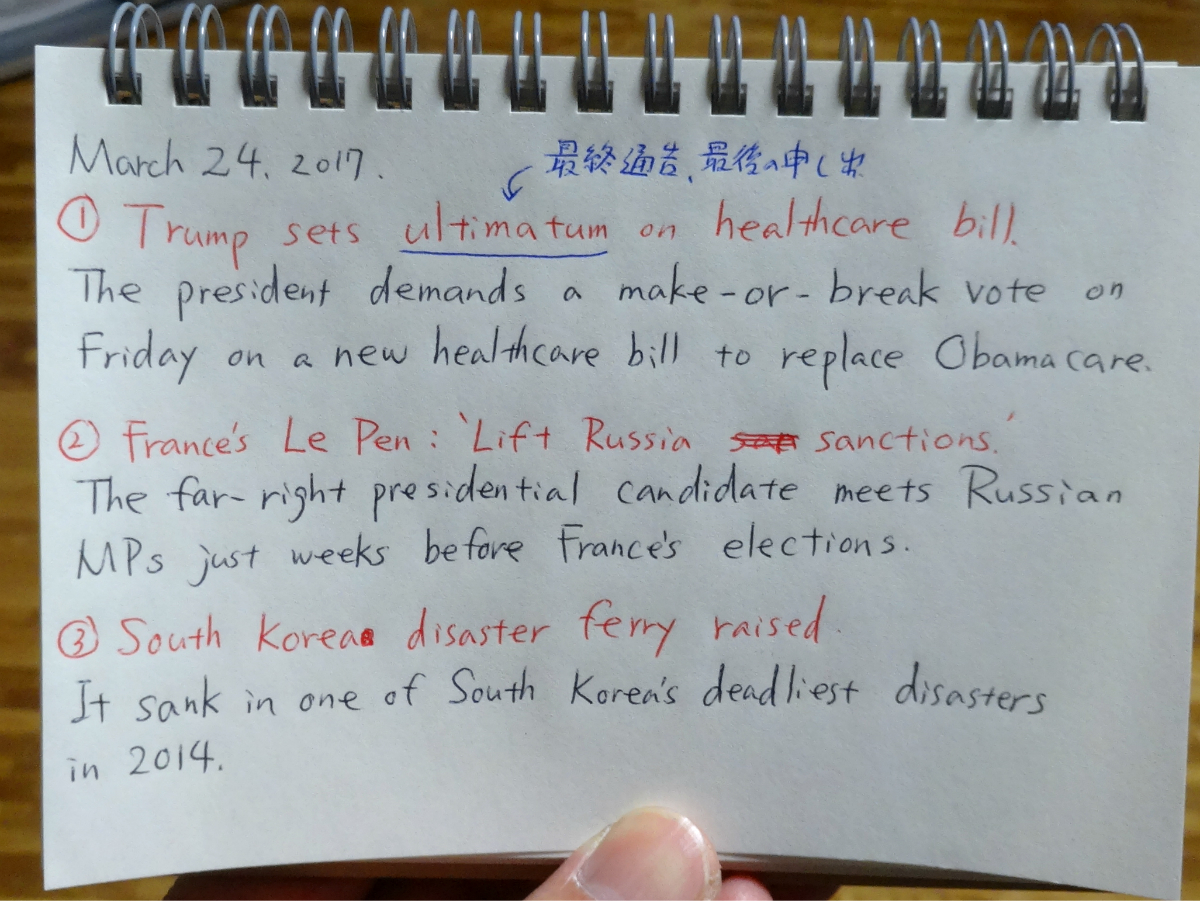 March 24, 2017.
最終通告、最後の申し出
① Trump sets ultimatum on healthcare bill.
The president demands a make-or-break vote on
Friday on a new healthcare bill to replace Obamacare.
② France's Le Pen : 'Lift Russia sanctions.'
The far-right presidential candidate meets Russian
MPs just weeks before France's elections.
③ South Korea disaster ferry raised.
It sank in one of South Korea's deadliest disasters
in 2014.